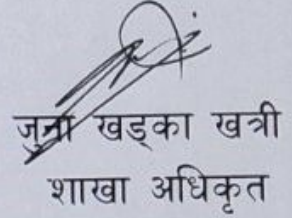 जुना खड्का खत्री
शाखा अधिकृत